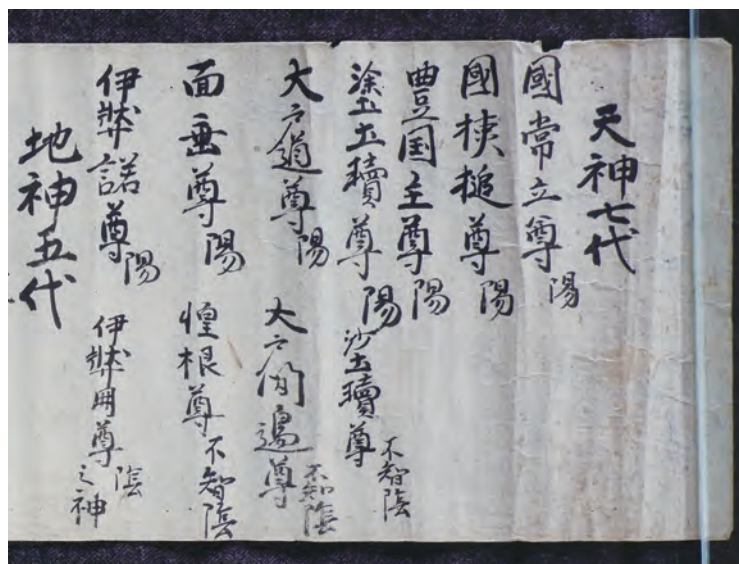 天神七代
國常立尊陽
國挟槌尊陽
豊国主尊陽
塗土瓊尊陽 沙土瓊尊不智陰
大戸道尊陽 大戸間邊尊不知陰
面垂尊陽 惶根尊不智陰
伊弉諾尊陽 伊弉冊尊陰之神
地神五代